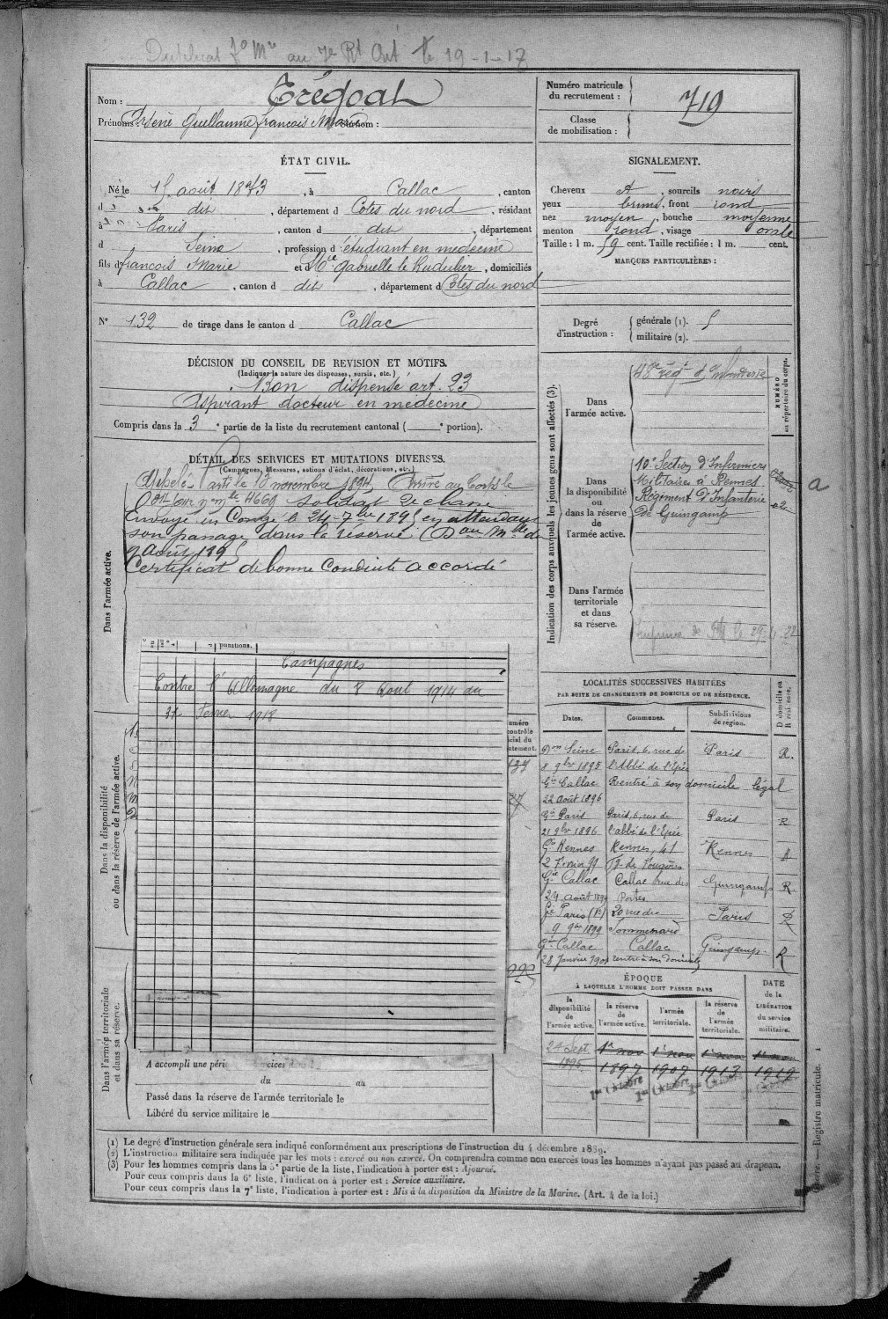 Duplicat au 7e Rt Art le 19-1-17
Nom : Trégoat
Prénoms : Guillaume François Marie Surnom :
Numéro matricule du recrutement : 719
Classe de mobilisation :
ÉTAT CIVIL.
Né le 15 août 1873, à Callac, canton
d dit, département d Côtes du nord, résidant
à Paris, canton d dit, département
d Seine, profession d étudiant en médecine
fils d François Marie et Gabrielle le , domiciliés
à Callac, canton d dit, département d Côtes du nord
N° 132 de tirage dans le canton d Callac
DÉCISION DU CONSEIL DE REVISION ET MOTIFS.
(Indiquer la nature des dispenses, sursis, etc.)
Bon dispensé art. 23
Aspirant docteur en médecine
Compris dans la 3e partie de la liste du recrutement cantonal ( e portion).
SIGNALEMENT.
Cheveux , sourcils noirs
yeux bruns, front rond
nez moyen, bouche moyenne
menton rond, visage ovale
Taille : 1 m. 59 cent. Taille rectifiée : 1 m. cent.
MARQUES PARTICULIÈRES :
Degré d'instruction : générale (1). 5
militaire (2).
DÉTAIL DES SERVICES ET MUTATIONS DIVERSES.
(Campagnes, blessures, actions d'éclat, décorations, etc.)
Dans l'armée active.
Appelé novembre 1894 Arrivé au Corps le
soldat de 2e classe
Envoyé en Congé le 24 7bre 1895 en attendant
son passage dans la réserve.
Certificat de bonne Conduite accordé
punitions.
Campagnes
Contre l'Allemagne du 8 Aout 1914 au
Fevrier 1918
Dans la disponibilité ou dans la réserve de l'armée active.
Dans l'armée territoriale et dans sa réserve.
A accompli une
du au
Passé dans la réserve de l'armée territoriale le
Libéré du service militaire le
Indication des corps auxquels les jeunes gens sont affectés (3).
NUMÉRO au répertoire du corps.
Dans l'armée active.
48e régt d'Infanterie
Dans la disponibilité ou dans la réserve de l'armée active.
10e Section d'Infirmiers
Militaire à Rennes
Régiment d'Infanterie
De Guingamp
a
Dans l'armée territoriale et dans sa réserve.
LOCALITÉS SUCCESSIVES HABITÉES
PAR SUITE DE CHANGEMENTS DE DOMICILE OU DE RÉSIDENCE.
Dates. Communes. Subdivisions de région. D domicile ou R résidence.
Don Seine Paris, 6, rue de Paris R.
8 9bre 1895 l'Abbé de l'Epée
Gie Callac Rentré à son domicile légal
22 Août 1896
Gie Paris Paris, 6, rue de Paris R
21 9bre 1896 l'abbé de l'Epée
Gie Rennes Rennes, 41 Rennes
Fg. de Fougères
Gie Callac Callac rue des Guingamp R.
24 Août Portes
Gie Paris 20 rue du Paris R
9 9bre 1899 Sommerard
Gie Callac Callac Guingamp R
28 Janvier rentré à son domicile
ÉPOQUE
À LAQUELLE L'HOMME DOIT PASSER DANS
la disponibilité de l'armée active. la réserve de l'armée active. l'armée territoriale. la réserve de l'armée territoriale.
DATE de la LIBÉRATION du service militaire.
24 Sept. 1er nov 1er nov 1er nov 1er nov
1895 1897 1907 1913 1919
1er Octobre 1er Octobre 1er Octobre
(1) Le degré d'instruction générale sera indiqué conformément aux prescriptions de l'instruction du 4 décembre 1889.
(2) L'instruction militaire sera indiquée par les mots : exercé ou non exercé. On comprendra comme non exercés tous les hommes n'ayant pas passé au drapeau.
(3) Pour les hommes compris dans la 5e partie de la liste, l'indication à porter est : Ajourné.
Pour ceux compris dans la 6e liste, l'indication à porter est : Service auxiliaire.
Pour ceux compris dans la 7e liste, l'indication à porter est : Mis à la disposition du Ministre de la Marine. (Art. 4 de la loi.)
Registre matricule.